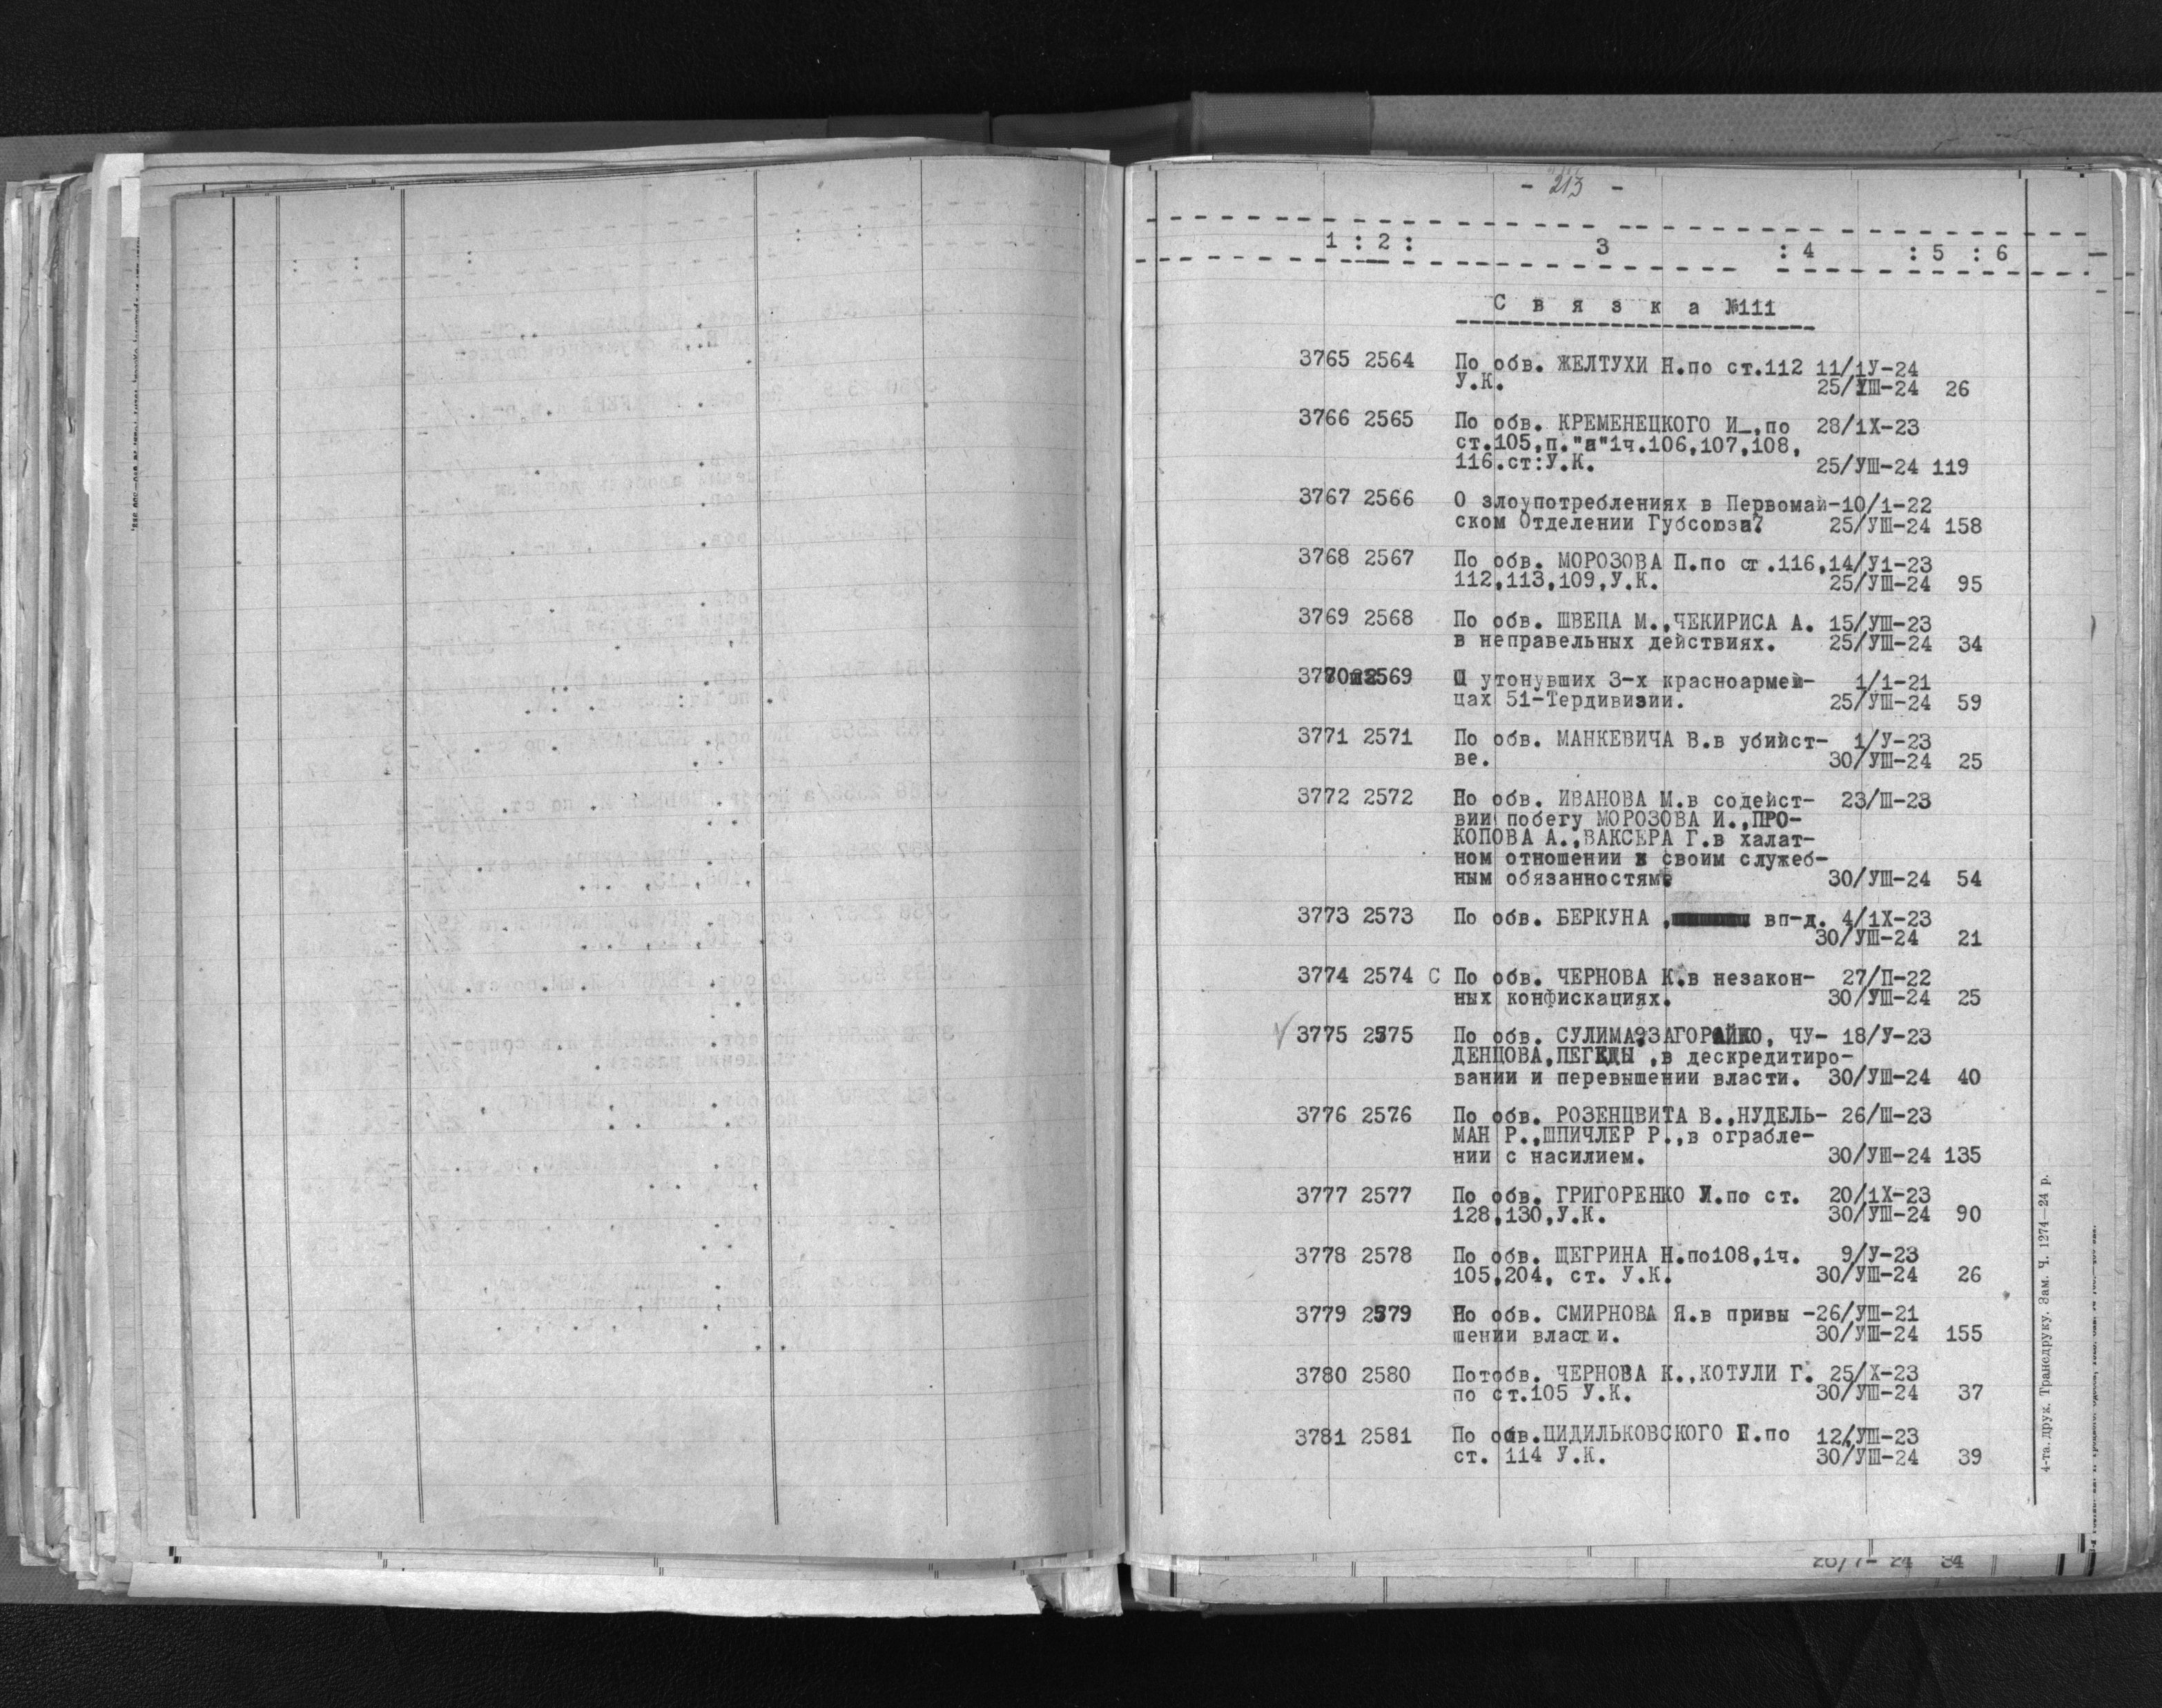 - 213 -
1 : 2 : 3 : 4 : 5 : 6
С в я з к а №111
3765 2564 По обв. ЖЕЛТУХИ Н.по ст.112 11/1У-24
У.К. 25/УШ-24 26
3766 2565 По обв. КРЕМЕНЕЦКОГО И_,по 28/1Х-23
ст.105,п."а"1ч.106,107,108,
116.ст:У.К. 25/УШ-24 119
3767 2566 О злоупотреблениях в Первомай-10/1-22
ском Отделении Губсоюза? 25/УШ-24 158
3768 2567 По обв. МОРОЗОВА П.по ст.116,14/У1-23
112,113,109,У.К. 25/УШ-24 95
3769 2568 По обв. ШВЕЦА М.,ЧЕКИРИСА А. 15/УШ-23
в неправельных действиях. 25/УШ-24 34
3770 2569 О утонувших 3-х красноармей- 1/1-21
цах 51-Тердивизии. 25/УШ-24 59
3771 2571 По обв. МАНКЕВИЧА В.в убийст- 1/У-23
ве. 30/УШ-24 25
3772 2572 По обв. ИВАНОВА М.в содейст- 23/Ш-23
вии побегу МОРОЗОВА И.,ПРО-
КОПОВА А.,ВАКСЕРА Г.в халат-
ном отношении к своим служеб-
ным обязанностям. 30/УШ-24 54
3773 2573 По обв. БЕРКУНА , вп-д. 4/1Х-23
30/УШ-24 21
3774 2574 С По обв. ЧЕРНОВА К.в незакон- 27/П-22
ных конфискациях. 30/УШ-24 25
√ 3775 2575 По обв. СУЛИМА,ЗАГОРАЙКО, ЧУ- 18/У-23
ДЕНЦОВА,ПЕГЕДЫ ,в дескредитиро-
вании и перевышении власти. 30/УШ-24 40
3776 2576 По обв. РОЗЕНЦВИТА В.,НУДЕЛЬ- 26/Ш-23
МАН Р.,ШПИЧЛЕР Р.,в ограбле-
нии с насилием. 30/УШ-24 135
3777 2577 По обв. ГРИГОРЕНКО И.по ст. 20/1Х-23
128,130,У.К. 30/УШ-24 90
3778 2578 По обв. ЩЕГРИНА Н.по108,1ч. 9/У-23
105,204, ст. У.К. 30/УШ-24 26
3779 2579 По обв. СМИРНОВА Я.в привы -26/УШ-21
шении власти. 30/УШ-24 155
3780 2580 Потобв. ЧЕРНОВА К.,КОТУЛИ Г. 25/Х-23
по ст.105 У.К. 30/УШ-24 37
3781 2581 По обв.ЦИДИЛЬКОВСКОГО П.по 12/УШ-23
ст. 114 У.К. 30/УШ-24 39
4-та. друк. Транедруку. Зам. Ч. 1274—24 р.